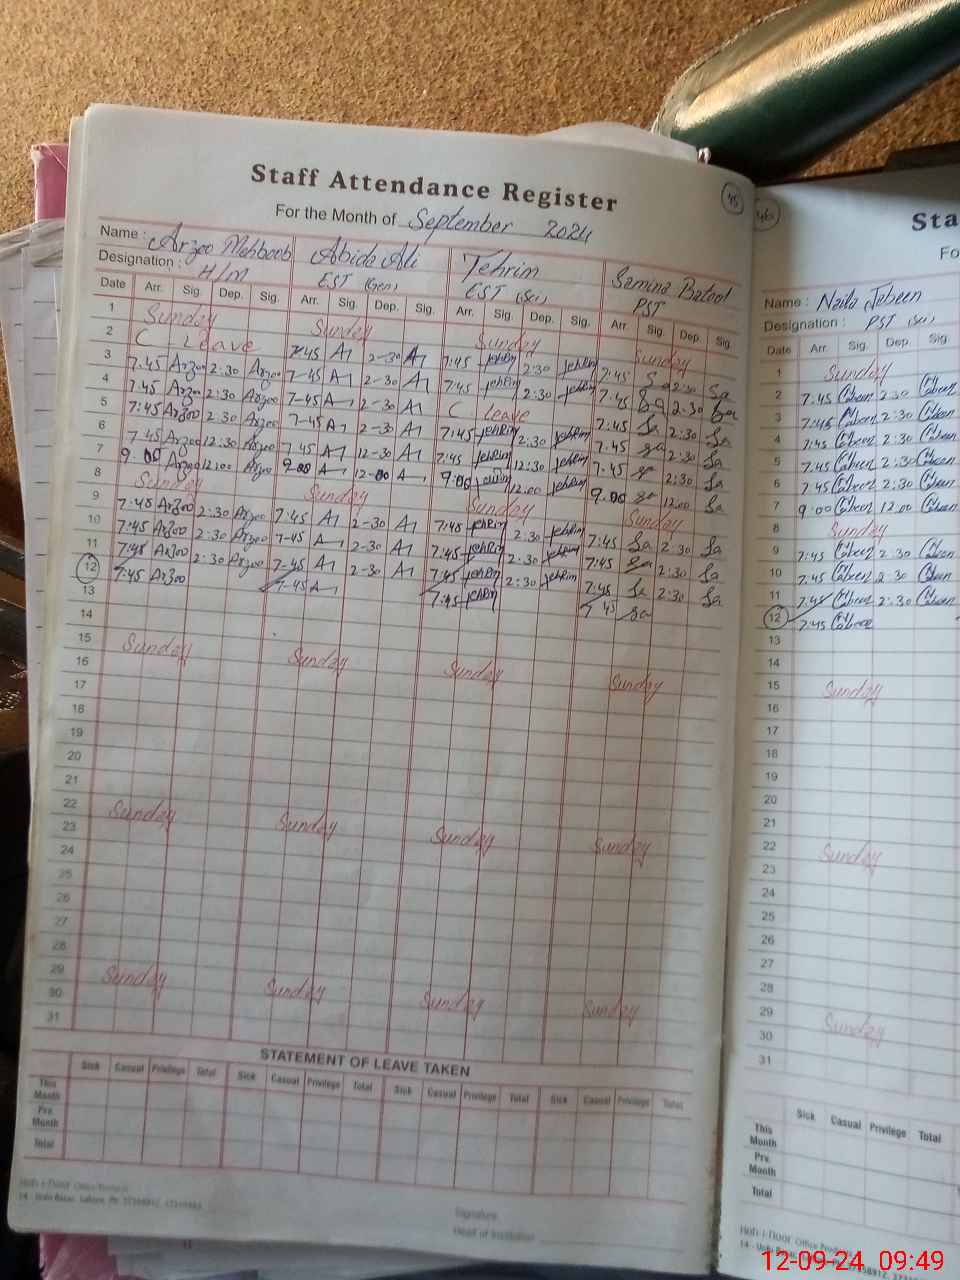 Staff Attendance Register
45
For the Month of September 2024
Name : Arzoo Mehboob Abida Ali Tehrim Samina Batool
Designation : H/M EST (Gen) EST (Sci) PST
Date Arr. Sig. Dep. Sig. Arr. Sig. Dep. Sig. Arr. Sig. Dep. Sig. Arr. Sig. Dep. Sig.
1 Sunday Sunday Sunday Sunday
2 C Leave 7-45 A1 2-30 A1 7:45 Tehrim 2:30 Tehrim 7.45 Sa 2:30 Sa
3 7.45 Arzoo 2.30 Arzoo 7-45 A1 2-30 A1 7:45 Tehrim 2:30 Tehrim 7.45 Sa 2.30 Sa
4 7.45 Arzoo 2:30 Arzoo 7-45 A1 2-30 A1 C leave 7:45 Sa 2:30 Sa
5 7:45 Arzoo 2:30 Arzoo 7-45 A1 2-30 A1 7:45 Tehrim 2:30 Tehrim 7.45 Sa 2:30 Sa
6 7 45 Arzoo 12:30 Arzoo 7 45 A1 12-30 A1 7:45 Tehrim 12:30 Tehrim 7.45 Sa 2:30 Sa
7 9.00 Arzoo 12:00 Arzoo 9-00 A1 12-00 A1 9:00 Tehrim 12:00 Tehrim 9.00 Sa 12:00 Sa
8 Sunday Sunday Sunday Sunday
9 7:45 Arzoo 2:30 Arzoo 7:45 A1 2-30 A1 7:45 Tehrim 2:30 Tehrim 7:45 Sa 2:30 Sa
10 7:45 Arzoo 2:30 Arzoo 7-45 A1 2-30 A1 7:45 Tehrim 2:30 Tehrim 7:45 Sa 2:30 Sa
11 7:45 Arzoo 2:30 Arzoo 7-45 A1 2-30 A1 7:45 Tehrim 2:30 Tehrim 7:45 Sa 2:30 Sa
12 7:45 Arzoo 7-45 A1 7:45 Tehrim 7 45 Sa
13
14
15 Sunday Sunday Sunday Sunday
16
17
18
19
20
21
22 Sunday Sunday Sunday Sunday
23
24
25
26
27
28
29 Sunday Sunday Sunday Sunday
30
31
STATEMENT OF LEAVE TAKEN
Sick Casual Privilege Total Sick Casual Privilege Total Sick Casual Privilege Total Sick Casual Privilege Total
This Month
Pre. Month
Total
Signature
Head of Institution
46
Sta
Fo
Name : Naila Jabeen
Designation : PST (Sci)
Date Arr. Sig. Dep. Sig.
1 Sunday
2 7.45 2:30
3 7:45 2:30
4 7:45 2:30
5 7.45 2:30
6 7.45 2:30
7 9.00 12.00
8 Sunday
9 7:45 2:30
10 7:45 2:30
11 7:45 2:30
12 7:45
13
14
15 Sunday
16
17
18
19
20
21
22 Sunday
23
24
25
26
27
28
29 Sunday
30
31
Sick Casual Privilege Total
This Month
Pre. Month
Total
12-09-24 09:49